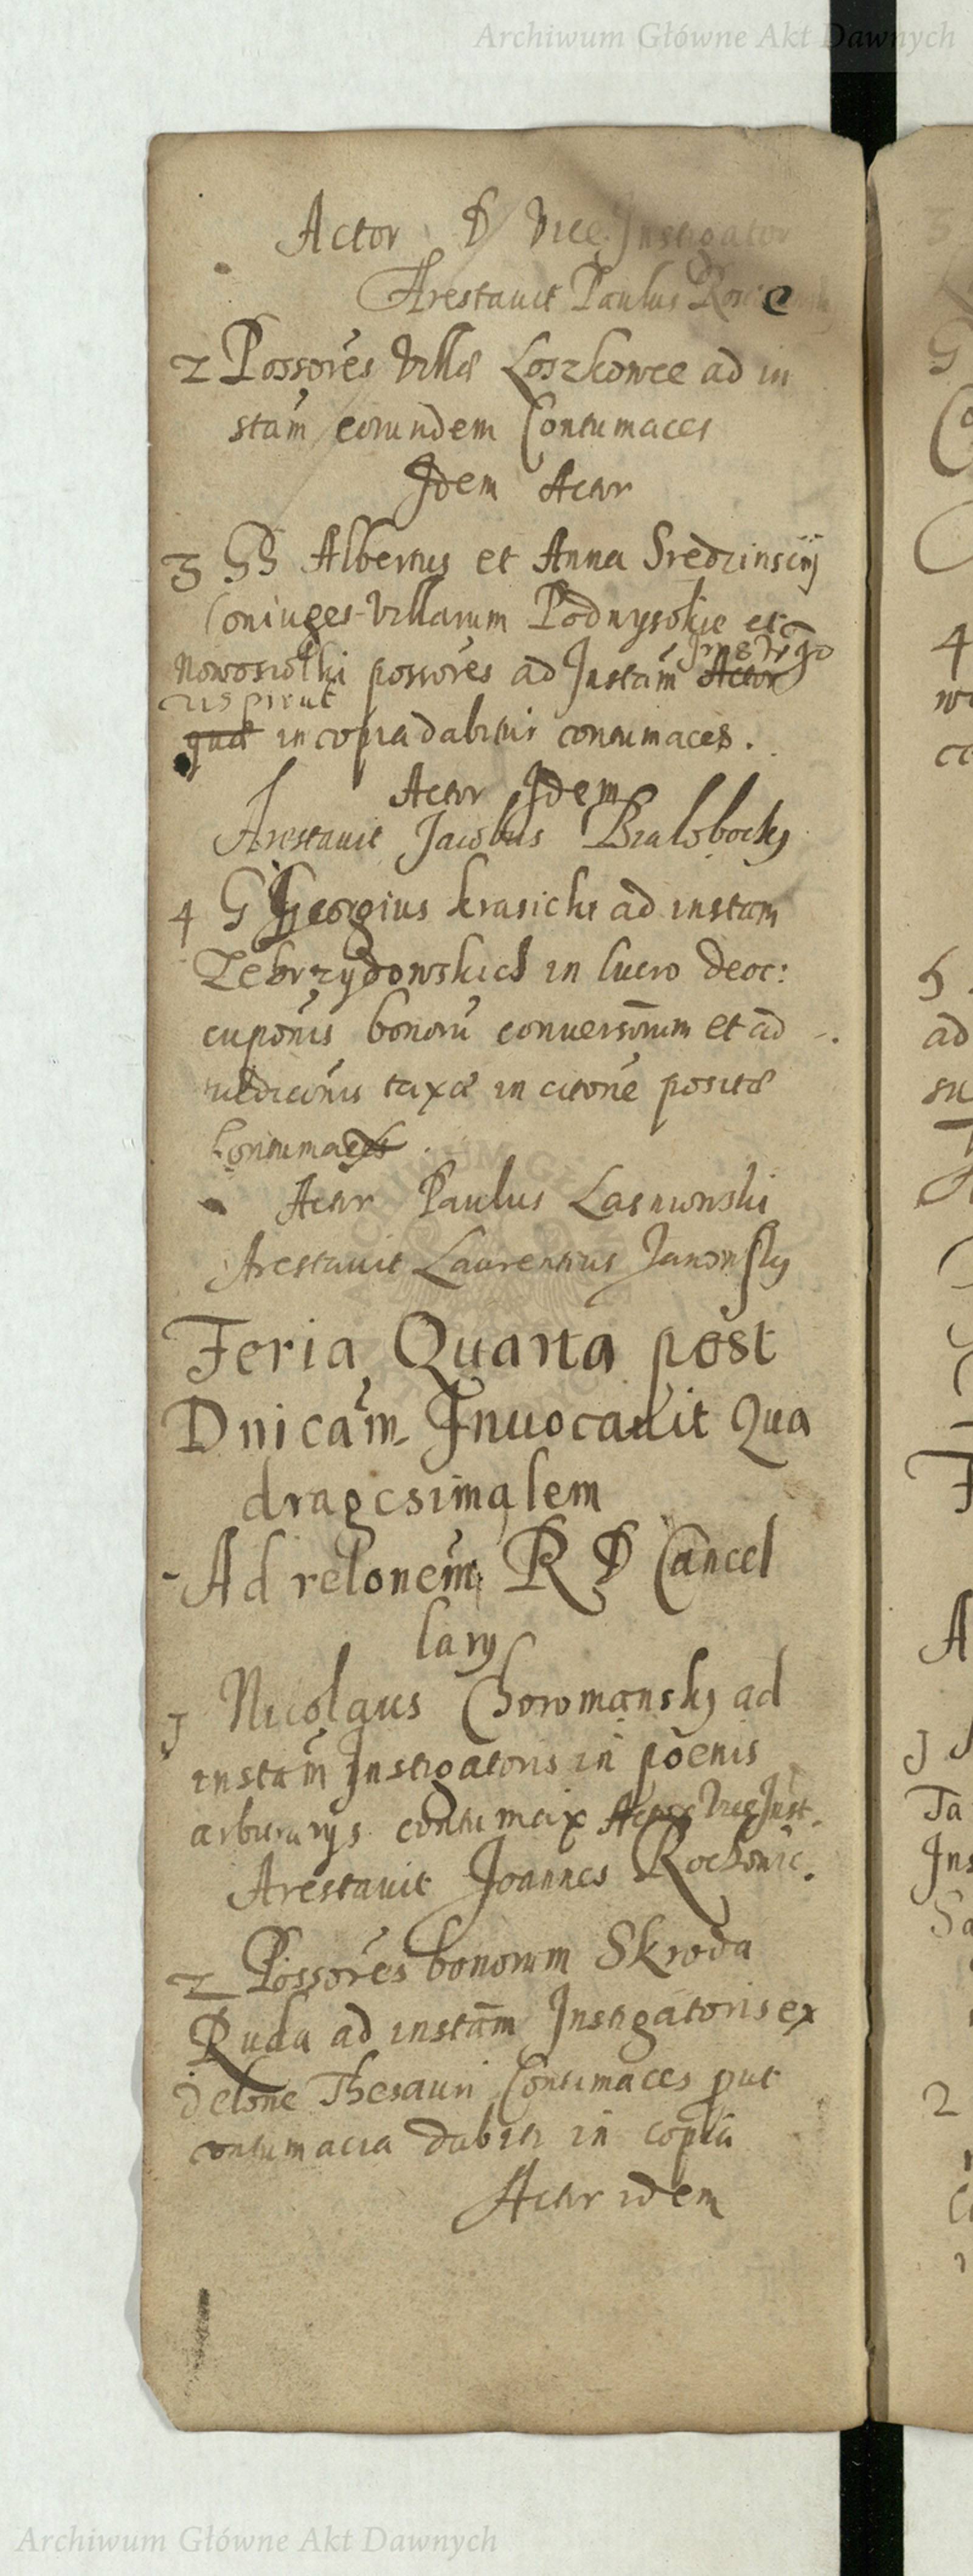 Archiwum Główne Akt Dawnych
Actor D Vice Instigator
Arestauit Paulus
2 Possores Villæ Loszkowce ad in
stam eorundem Contumaces
Idem Actor
3 GG Albertus et Anna Sredzinscÿ
Coniuges Villarum Podwysokie et
Instigo
Nowosiołki possores ad Instam Actor
ris prout
quæ in copia dabitur contumaces.
Actor Idem
Arestauit Jacobus Bialobocky
4 G Georgius Krasicki ad instam
Zebrzydowskich in lucro deoc:
cuponis bonoru conversorum et ad
iudicionis taxæ in citone positæ
Contumaces
Actor Paulus Lasniowski
Arestauit Laurentius Janowsky
Feria Quarta post
Dnicam Inuocauit Qua
dragesimalem
Ad relonem R D Cancel
lary
1 Nicolaus Choromansky ad
instam Instigatoris in poenis
arburarys contumax Actor Vice Inst.
Arestauit Joannes Rochowic.
2 Possores bonorum Skroda
Ruda ad instam Instigatoris ex
delone Thesauri Contumaces put
contumacia dabitr in copia
Actor idem
Archiwum Główne Akt Dawnych